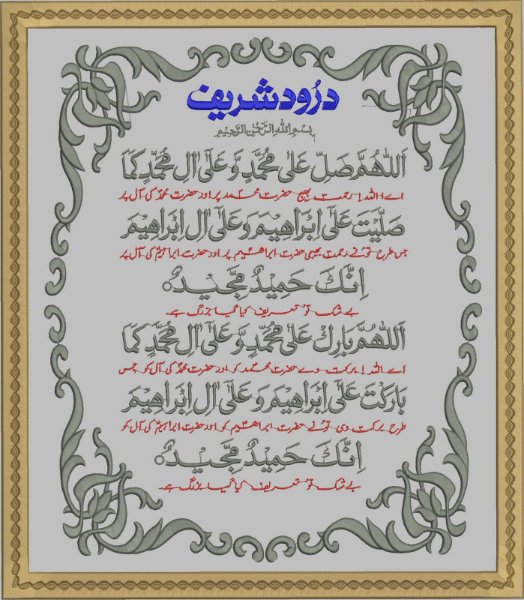 درود شریف
بِسْمِ اللهِ الرَّحْمٰنِ الرَّحِيْمِ
اَللّٰهُمَّ صَلِّ عَلٰى مُحَمَّدٍ وَّ عَلٰٓى اٰلِ مُحَمَّدٍ كَمَا
اے اللہ! رحمت بھیج حضرت محمد پر اور حضرت محمد کی آل پر
صَلَّيْتَ عَلٰٓى اِبْرَاهِيْمَ وَ عَلٰٓى اٰلِ اِبْرَاهِيْمَ
جس طرح تو نے رحمت بھیجی حضرت ابراھیم پر اور حضرت ابراھیم کی آل پر
اِنَّكَ حَمِيْدٌ مَّجِيْدٌ
بے شک تو تعریف کیا گیا بزرگ ہے۔
اَللّٰهُمَّ بَارِكْ عَلٰى مُحَمَّدٍ وَّ عَلٰٓى اٰلِ مُحَمَّدٍ كَمَا
اے اللہ! برکت دے حضرت محمد کو اور حضرت محمد کی آل کو جس
بَارَكْتَ عَلٰٓى اِبْرَاهِيْمَ وَ عَلٰٓى اٰلِ اِبْرَاهِيْمَ
طرح برکت دی تو نے حضرت ابراھیم کو اور حضرت ابراھیم کی آل کو
اِنَّكَ حَمِيْدٌ مَّجِيْدٌ
بے شک تو تعریف کیا گیا بزرگ ہے۔